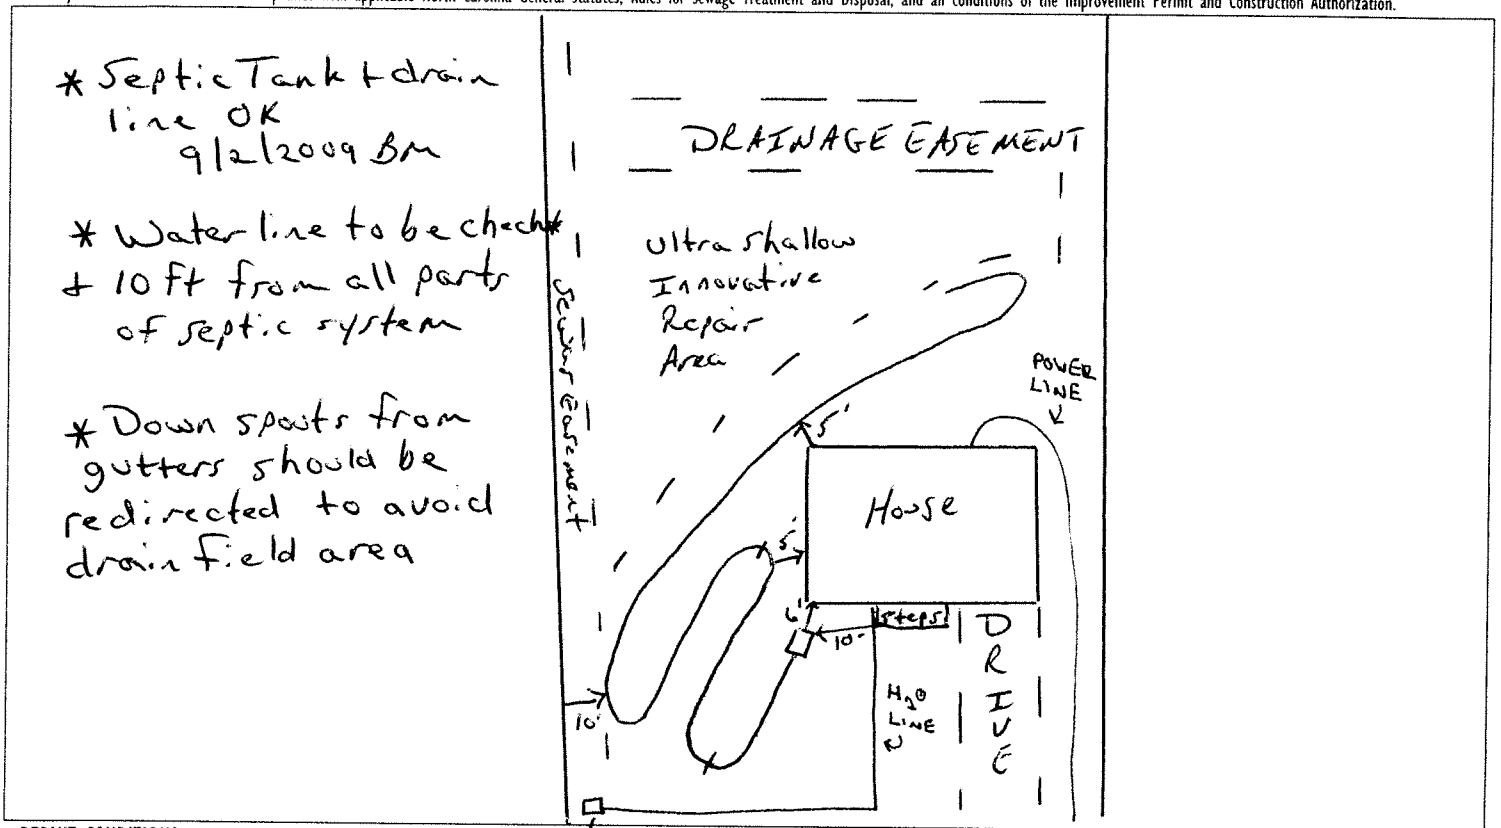 applicable North Carolina General Statutes, Rules for Sewage Treatment and Disposal, and all conditions of the Improvement Permit and Construction Authorization.
* Septic Tank + drain
line OK
9/2/2009 BM
* Water line to be check*
+ 10 ft from all parts
of septic system
* Down spouts from
gutters should be
redirected to avoid
drain field area
DRAINAGE EASEMENT
Ultra shallow
Innovative
Repair
Area
Sewer Easement
POWER
LINE
5'
House
5'
6'
steps
10'
10'
H2O
LINE
DRIVE